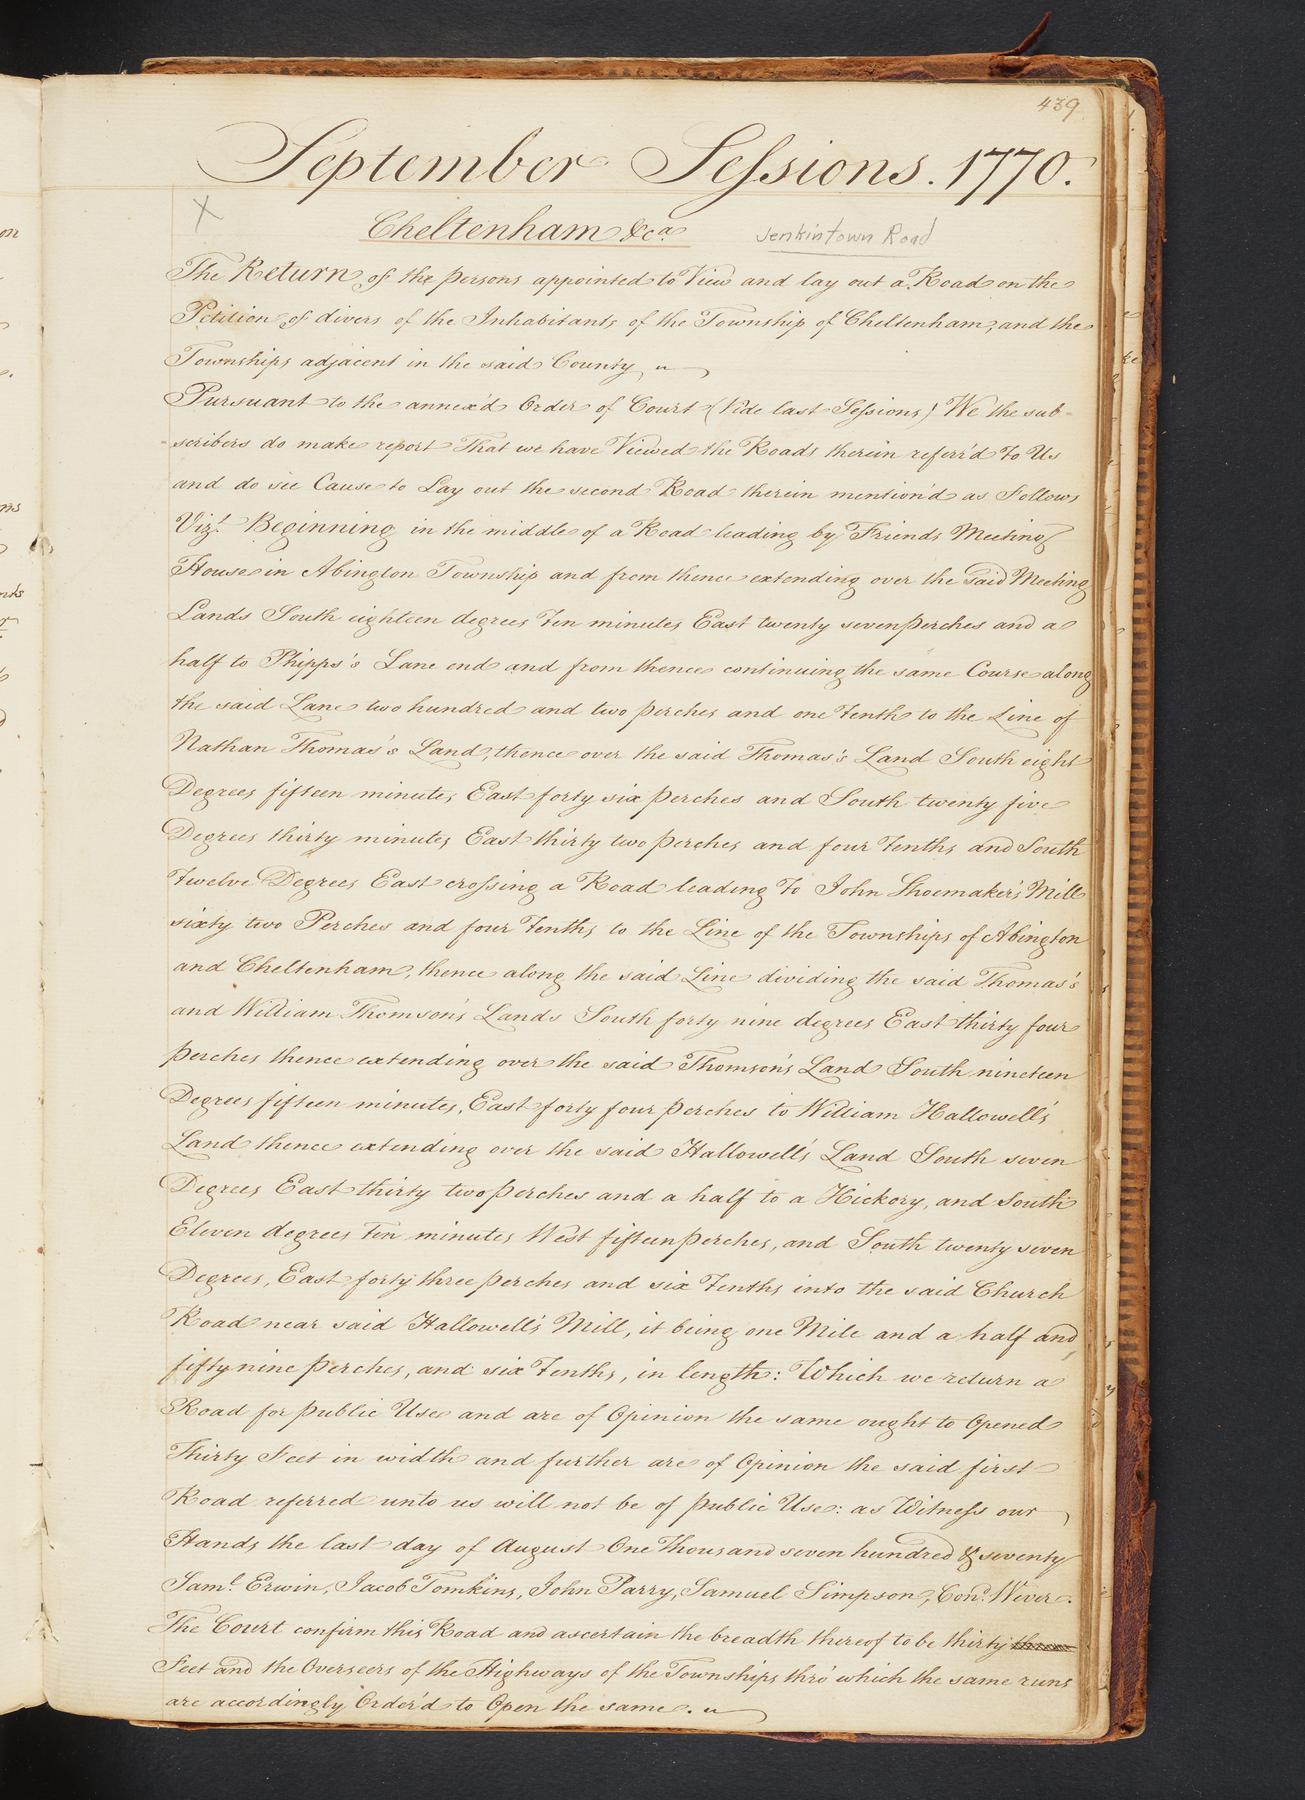 439
September Sessions. 1770.
Cheltenham &ca.
Jenkintown Road
The Return of the persons appointed to View and lay out a Road on the
Petition of divers of the Inhabitants of the Township of Cheltenham, and the
Townships adjacent in the said County
Pursuant to the annex'd Order of Court (Vide last Sessions) We the sub-
scribers do make report That we have Viewed the Roads therein referr'd to Us
and do see Cause to Lay out the second Road therein mention'd as Follows
Vizt. Beginning in the middle of a Road leading by Friends Meeting
House in Abington Township and from thence extending over the said Meeting
Lands South eighteen degrees Ten minutes East twenty seven perches and a
half to Phipps's Lane end and from thence continuing the same Course along
the said Lane two hundred and two perches and one Tenth to the Line of
Nathan Thomas's Land, thence over the said Thomas's Land South eight
Degrees fifteen minutes East forty six perches and South twenty five
Degrees thirty minutes East thirty two perches and four Tenths and South
Twelve Degrees East crossing a Road leading To John Shoemaker's Mill
sixty two Perches and four Tenths to the Line of the Townships of Abington
and Cheltenham, thence along the said Line dividing the said Thomas's
and William Thomson's Lands South forty nine degrees East thirty four
perches thence extending over the said Thomson's Land South nineteen
Degrees fifteen minutes, East forty four perches to William Hallowell's
Land thence extending over the said Hallowell's Land South seven
Degrees East thirty two perches and a half to a Hickory, and South
Eleven degrees Ten minutes West fifteen perches, and South twenty seven
Degrees, East forty three perches and six Tenths into the said Church
Road near said Hallowell's Mill, it being one Mile and a half and
fifty nine perches, and six Tenths, in length: Which we return a
Road for public Use and are of Opinion the same ought to Opened
Thirty Feet in width and further are of Opinion the said first
Road referred unto us will not be of public Use: as Witness our
Hands the last day of August One Thousand seven hundred & seventy
Saml. Erwin, Jacob Tomkins, John Parry, Samuel Simpson, Cond. Wiver.
The Court confirm this Road and ascertain the breadth thereof to be thirty
Feet and the Overseers of the Highways of the Townships thro' which the same runs
are accordingly Order'd to Open the same.